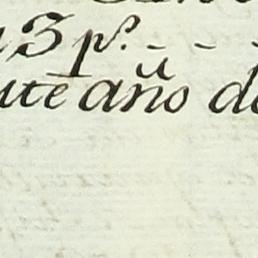 3 p.s - -
ute año de